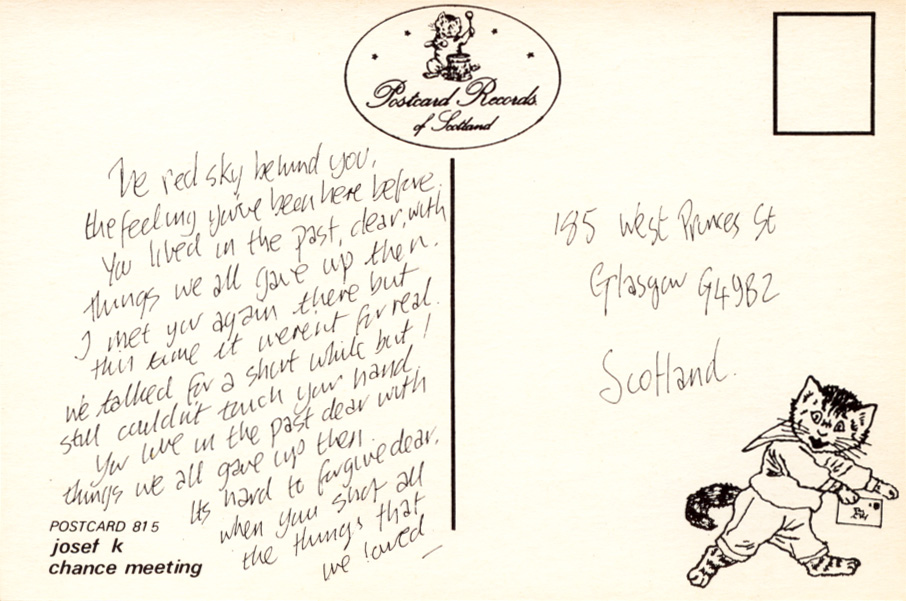 Postcard Records
of Scotland
The red sky behind you,
the feeling you've been here before.
You lived in the past, dear, with
things we all gave up then.
I met you again there but
this time it weren't for real.
we talked for a short while but I
still couldn't touch your hand.
You live in the past dear with
things we all gave up then.
Its hard to forgive dear,
when you shot all
the things that
we loved —
POSTCARD 81 5
josef k
chance meeting
185 West Princes St
Glasgow G49BZ
Scotland.